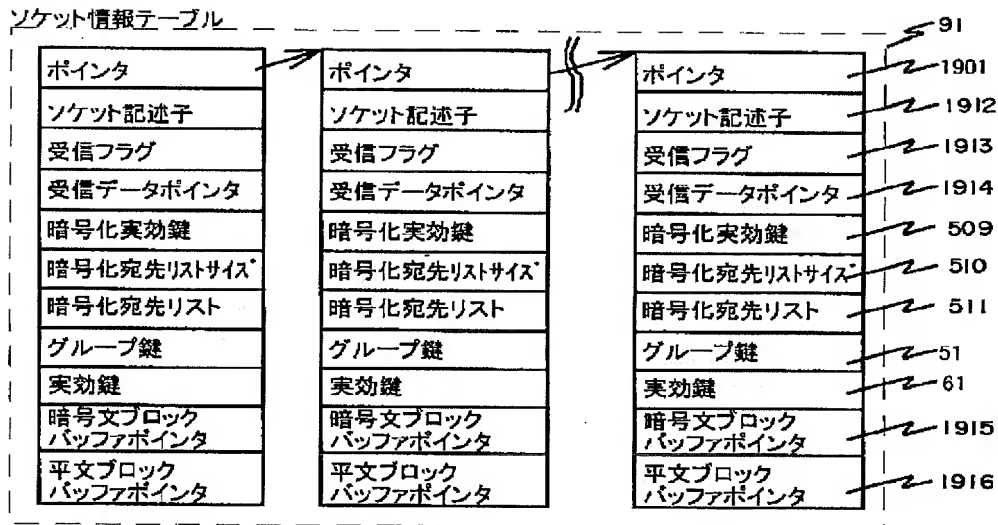 ソケット情報テーブル
91
ポインタ
ソケット記述子
受信フラグ
受信データポインタ
暗号化実効鍵
暗号化宛先リストサイズ
暗号化宛先リスト
グループ鍵
実効鍵
暗号文ブロック
バッファポインタ
平文ブロック
バッファポインタ
ポインタ
ソケット記述子
受信フラグ
受信データポインタ
暗号化実効鍵
暗号化宛先リストサイズ
暗号化宛先リスト
グループ鍵
実効鍵
暗号文ブロック
バッファポインタ
平文ブロック
バッファポインタ
ポインタ
ソケット記述子
受信フラグ
受信データポインタ
暗号化実効鍵
暗号化宛先リストサイズ
暗号化宛先リスト
グループ鍵
実効鍵
暗号文ブロック
バッファポインタ
平文ブロック
バッファポインタ
1901
1912
1913
1914
509
510
511
51
61
1915
1916